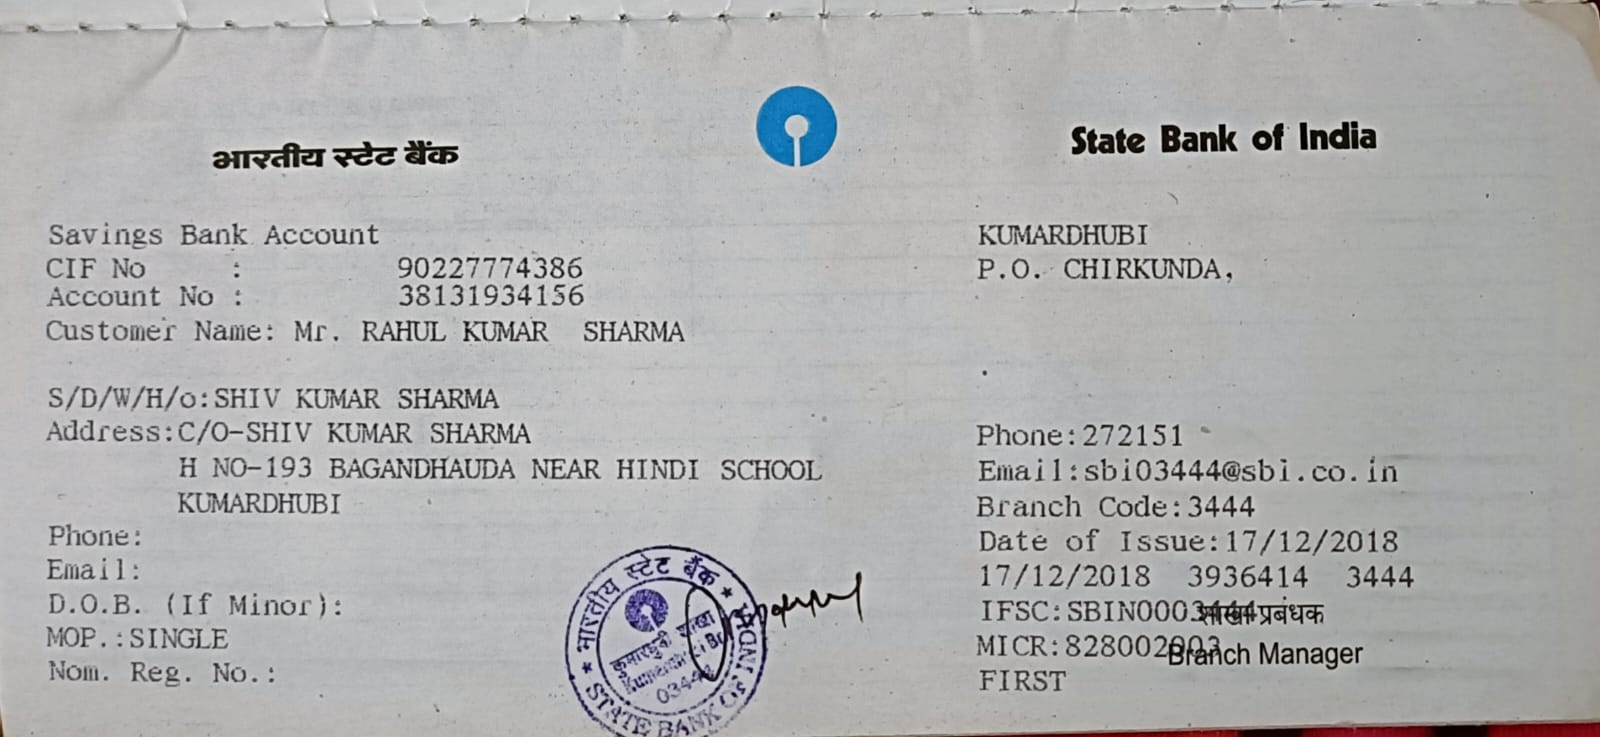 भारतीय स्टेट बैंक
State Bank of India
Savings Bank Account
CIF No : 90227774386
Account No : 38131934156
Customer Name: Mr. RAHUL KUMAR SHARMA
S/D/W/H/o:SHIV KUMAR SHARMA
Address:C/O-SHIV KUMAR SHARMA
H NO-193 BAGANDHAUDA NEAR HINDI SCHOOL
KUMARDHUBI
Phone:
Email:
D.O.B. (If Minor):
MOP.:SINGLE
Nom. Reg. No.:
KUMARDHUBI
P.O. CHIRKUNDA,
Phone:272151
Email:sbi03444@sbi.co.in
Branch Code:3444
Date of Issue:17/12/2018
17/12/2018 3936414 3444
IFSC:SBIN0003444
शाखा प्रबंधक
MICR:828002003
Branch Manager
FIRST
भारतीय स्टेट बैंक
कुमारधुबी शाखा
STATE BANK OF INDIA